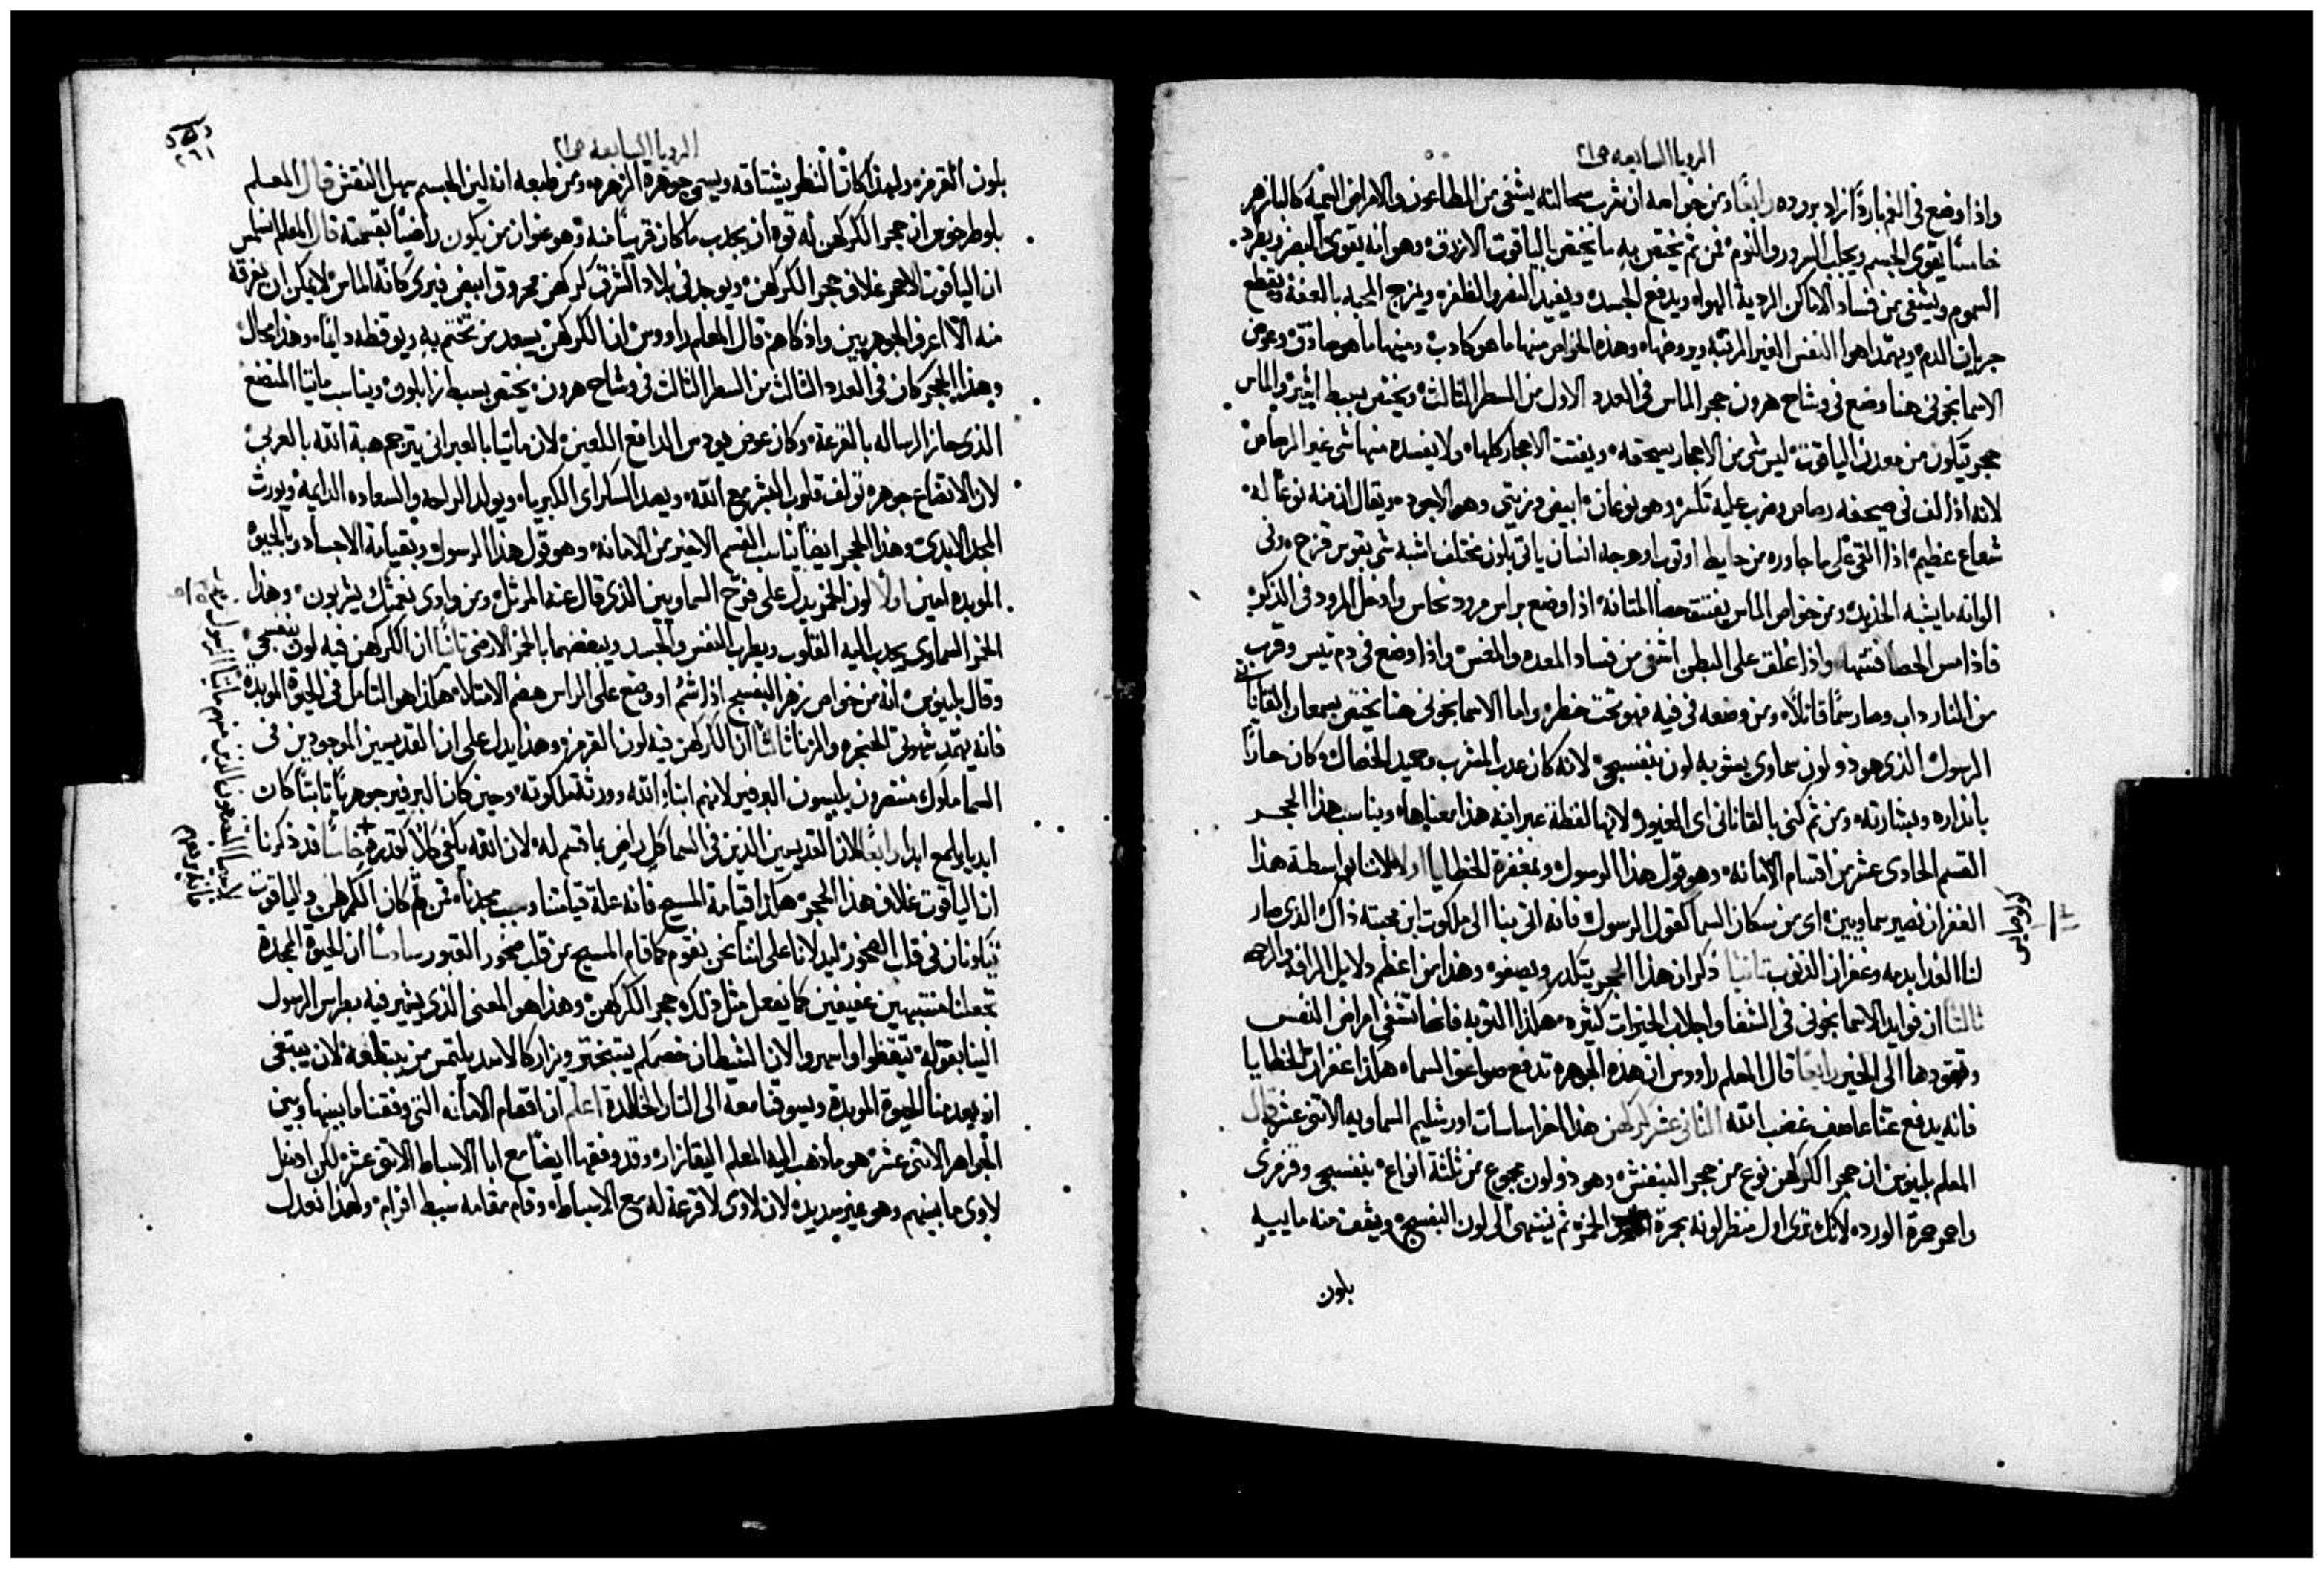 الرويا السابعه ص٢١
واذا وضع في الفم باردًا زاد بروده رابعًا ومن خواصه ان شرب سحالته يشفي من الطاعون والامراض السميه كالبازهر
خامسًا يقوي الجسم ويجلب السرور والنوم فمن ثم يختص به ما يختص بالياقوت الازرق وهو انه يقوي البصر ويطرد
السموم ويشفي من فساد الاماكن الردية الهواء ويدفع الجسد ويفيد النصر والظفر ويمزج المحبه بالعفه ويقطع
جريان الدم ويهمد اهوا النفس الغير المرتبه ويروضها وهذه الخواص منها ما هو كادب ومنها ما هو صادق وعوض
الاسمانجوني هنا وضع في وشاح هرون حجر الماس في العدد الاول من السطر الثالث ويختص بسبط والماس
حجر يتكون من معدن الياقوت ليس شي من الاحجار يسحقه ويفتت الاحجار كلها ولا يفسده منها شي غير الرصاص
لانه اذا لف في صحيفه رصاص وضرب عليه تكسر وهو نوعان ابيض وزيتي وهو الاجود ويقال ان منه نوعًا له
شعاع عظيم اذا القي على ما جاوره من حايط او ثوب او وجه انسان ياتي بلون مختلف اشبه شي بقوس قزح وفي
الوانه ما يشبه الحديد ومن خواص الماس يفتت حصا المثانه اذا وضع براس مرود نحاس وادخل المرود في الذكر
فاذا مس الحصا فتتها واذا علق على البطن اشفي من فساد المعده والمغس واذا وضع في دم تيس وقرب
من النار داب وصار سمًا قاتلًا ومن وضعه في فيه فهو تحت خطر واما الاسمانجوني هنا يختص بسمعان القاناني
الرسول الذي هو ذو لون سماوي يشوبه لون بنفسجي لانه كان عدب المشرب وحميد الخصال وكان حارًا
بانداره وبشارته ومن ثم كني بالقاناني اي الغيور لانها لفظة عبرانيه هذا معناها ويناسب هذا الحجر
القسم الحادي عشر من اقسام الامانه وهو قول هذا الرسول وبمغفرة الخطايا اولًا لاننا بواسطة هذا
الغفران نصير سماويين اي من سكان السما كقول الرسول فانه اتي بنا الى ملكوت ابن محبته ذاك الذي صار
لنا الفدا بدمه وغفران الذنوب ثانيًا ذكر ان هذا الحجر يتكدر ويصفو وهذا من اعظم دلايل الرافه والرحمه
ثالثًا ان فوايد الاسمانجوني في الشفا واجلاب الخيرات كثيره هكذا التوبه فانها تشفي امراض النفس
وتقودها الى الخير رابعًا قال المعلم راووس ان هذه الجوهره تدفع صواعق السماء هكذا غفران الخطايا
فانه يدفع عنا عاصف غضب الله الثاني عشر كركهن هذا اخر اساسات اورشليم السماويه الاثني عشر قال
المعلم بلينوس ان حجر الكركهن نوع من حجر البنفش وهو ذو لون مجموع من ثلثة انواع بنفسجي وقرمزي
واحمر حمرة الورده لانك ترى اول منظر لونه بحمرة الخمر ثم ينتهي الى لون البنفسج ويشف منه ما يبيه
بلون
الرويا السابعه ص٢١
٢٦١
بلون القرمزه ولهذا كان النظر يشتاقه ويسمي جوهرة الزهره ومن طبعه انه لين الجسم سهل النقش قال المعلم
بلوطرخوس ان حجر الكركهن له قوه ان يجذب ما كان قريبًا منه وهو عنوان من يكون راضيًا بقسمته قال المعلم
ان الياقوت الاحمر غلاف حجر الكركهن ويوجد في بلاد الشرق كركهن محروق ابيض فيري كانه الماس لا يمكن ان يفرقه
منه الا اعرف الجوهريين واذكاهم قال المعلم راووس ان الكركهن يسعد من تختم به ويوقظه دايمًا وهذا محال
وهذا الحجر كان في العدد الثالث من السطر الثالث في وشاح هرون يختص بسبط زابلون ويناسب ماتيا المتضع
الذي حاز الرساله بالقرعه وكان عوض يودس الدافع اللعين لان ماتيا بالعبراني يترجم هبة الله بالعربي
لان الاتضاع جوهره تولف قلوب البشر مع الله ويصد السكر اي الكبرياء ويولد الراحه والسعاده الدايمه ويورث
المجد الابدي وهذا الحجر ايضًا يناسب القسم الاخير من الامانه وهو قول هذا الرسول وبقيامة الاجساد وبالحيوة
الموبده امين اولًا لون الخمر يدل على فرح السماويين الذي قال عنه المرتل ومن وادي نعمتك يشربون وهذا
الخمر السماوي يجذب اليه القلوب ويطرب النفس والجسد ويبغضهما بالخمر الارضي ثانيًا ان الكركهن فيه لون بنفسجي
وقال بلينوس انه من خواص زهر البنفسج اذا شم او وضع على الراس هضم الامتلاء هكذا هو التامل في الحيوة الموبده
فانه يهمد شهوتي الحنجره والزنا ثالثًا ان الكركهن فيه لون القرمز وهذا يدل على ان القديسين الموجودين في
السما ملوك منتصرون يلبسون البرفير لانهم ابناء الله وورثة ملكوته وحين كان البرفير جوهريًا ثابتًا كان
ابديا يلمع ابدا رابعًا لان القديسين الذين في السما كل راض بما قسم له لان الله يكفي كلًا كقدره خامسًا قد ذكرنا
ان الياقوت غلاف هذا الحجر هكذا قيامة المسيح فانه علة قيامتنا وسبب مجدنا فمن ثم كان الكركهن والياقوت
يتكونان في قلب الصخور ليدلانا على اننا نحن نقوم كما قام المسيح من قلب صخور القبور سادسًا ان الحيوة الممجدة
تجعلنا منتبهين عفيفين كما يفعل مثل ذلك حجر الكركهن وهذا هو المعنى الذي يشير فيه بطرس الرسول
الينا بقوله تيقظوا واسهروا لان الشيطان خصمكم يتبختر ويزار كالاسد يلتمس من يبتلعه لان يبتغي
ان يعدمنا الحيوة الموبدة ويسوقنا معه الى النار الخالدة اعلم ان اقسام الامانه التي وفقنا ما بينها وبين
الجواهر الاثني عشر هو ما ذهب اليه المعلم اليقازار وقد وفقها ايضًا مع ابا الاسباط الاثني عشر لكن ادخل
لاوي ما بينهم وهو غير سديد لان لاوي لا قرعة له مع الاسباط وقام مقامه سبط افرام ولهذا نعدل